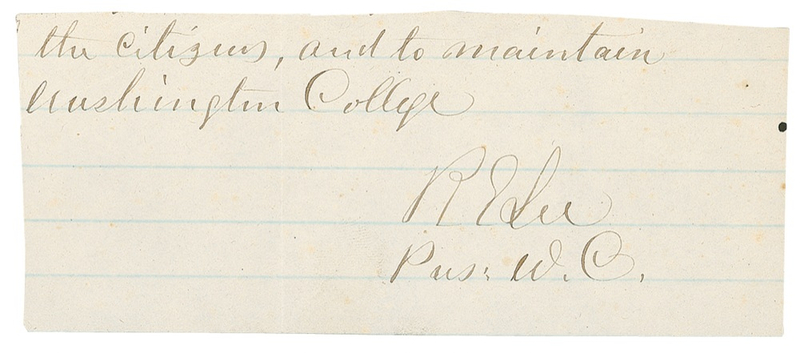 the citizens, and to maintain
Washington College
R E Lee
Pres: W. C.